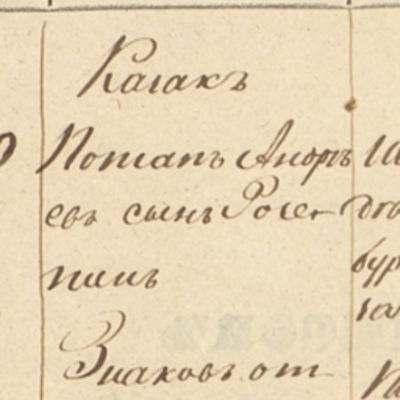 Казакъ
Потапъ Андрѣ
евъ сынъ Рогет
пинъ
бур
Знаковъ от